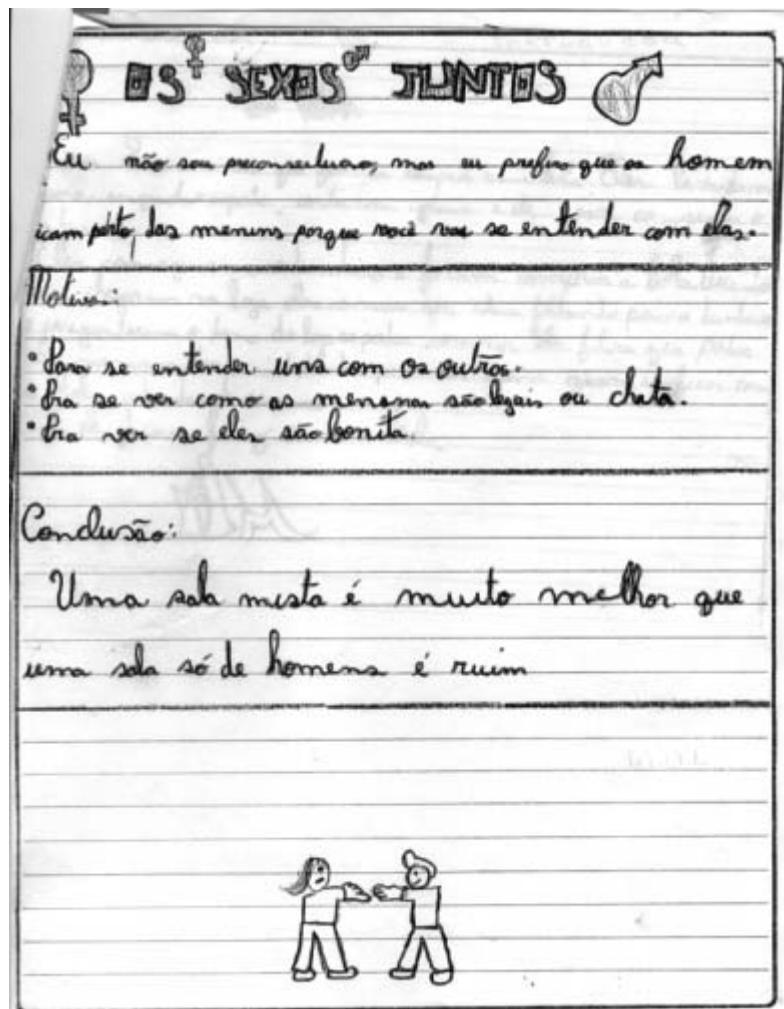 OS SEXOS JUNTOS
Eu não sou preconseituoso, mas eu prefiro que os homem
icam perto, das menins porque você vai se entender com elas.
Motivos:
• Para se entender uns com os outros.
• Pra se ver como as meninas são legais ou chata.
• Pra ver se eles são bonita.
Conclusão:
Uma sala mista é muito melhor que
uma sala só de homens é ruim